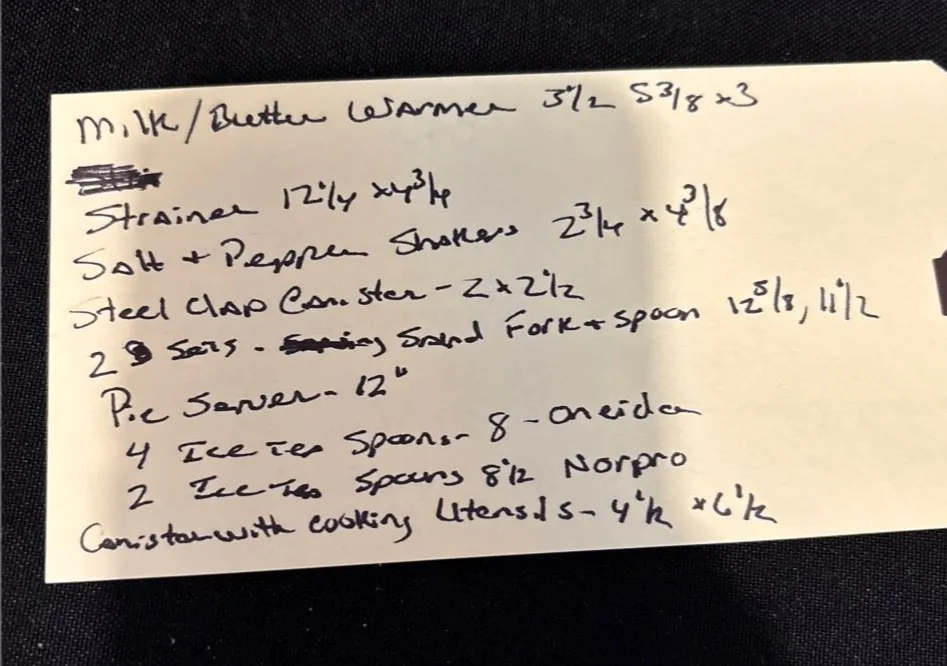 Milk/Butter Warmer 3 1/2 5 3/8 x 3
Strainer 12 1/4 x 4 3/4
Salt + Pepper Shakers 2 3/4 x 4 3/8
Steel Clap Canister - 2 x 2 1/2
2 Sets - Salad Fork + Spoon 12 5/8, 11 1/2
Pie Server - 12"
4 Ice Tea Spoons - 8 - Oneida
2 Ice Tea Spoons 8 1/2 Norpro
Canister with cooking Utensils - 4 1/2 x 6 1/2